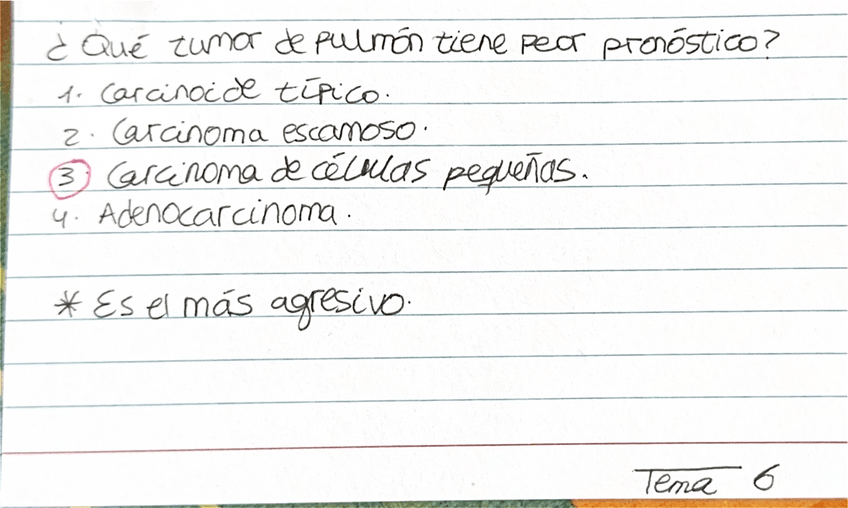 ¿Qué tumor de pulmón tiene peor pronóstico?
1. Carcinoide típico.
2. Carcinoma escamoso.
3. Carcinoma de células pequeñas.
4. Adenocarcinoma.
* Es el más agresivo.
Tema 6